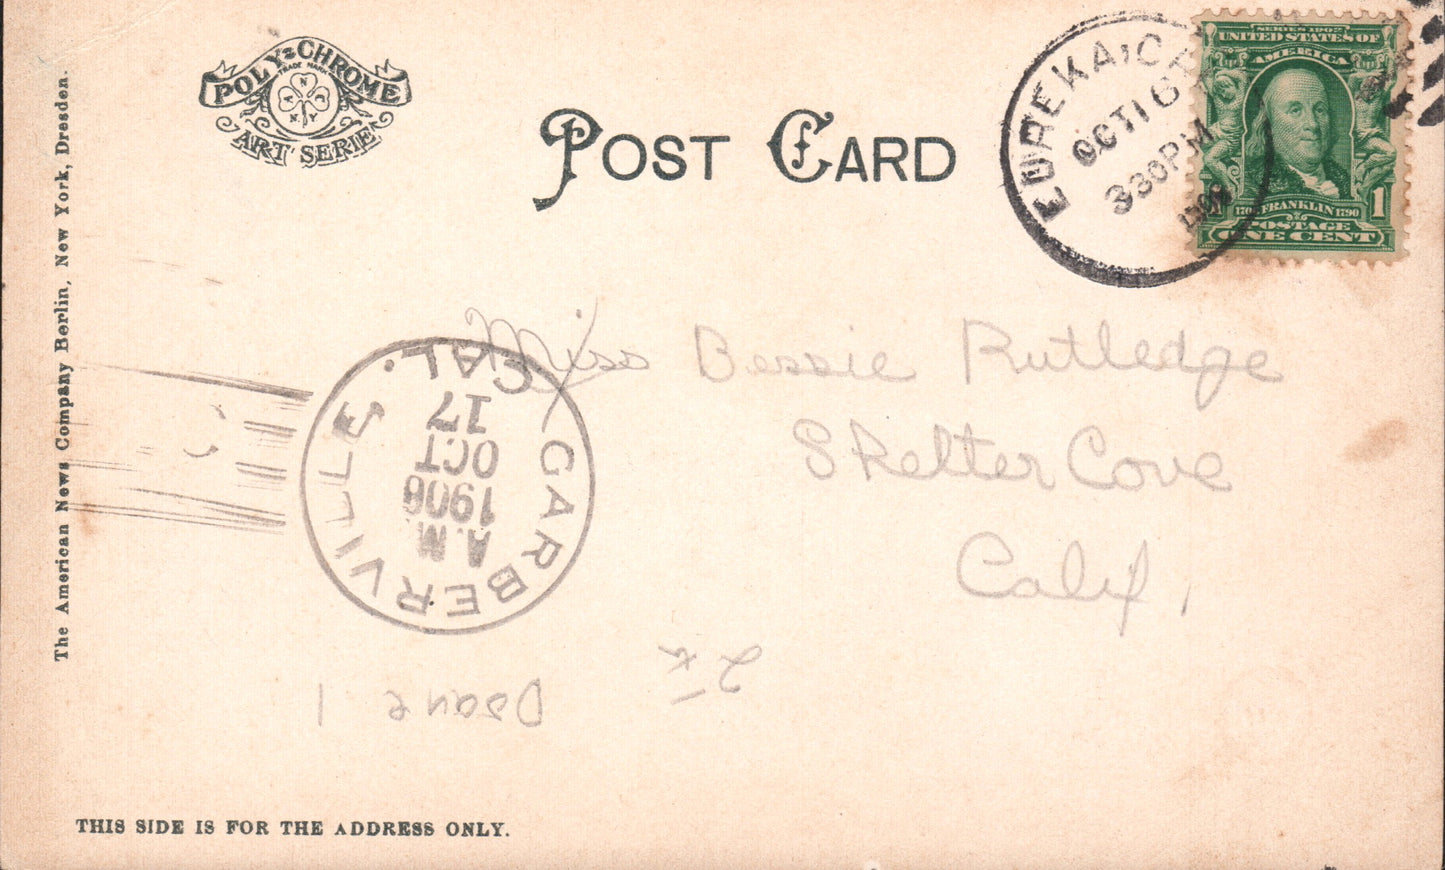 POLY-CHROME
TRADE MARK
A N C N Y
ART SERIE
POST CARD
EUREKA, CAL
OCT 16
330PM
1906
SERIES 1902
UNITED STATES OF
AMERICA
1
FRANKLIN 1790
POSTAGE
ONE CENT
The American News Company Berlin, New York, Dresden.
Miss Bessie Rutledge
Shelter Cove
Calif,
GARBERVILLE, CAL.
OCT
17
A.M.
1906
THIS SIDE IS FOR THE ADDRESS ONLY.